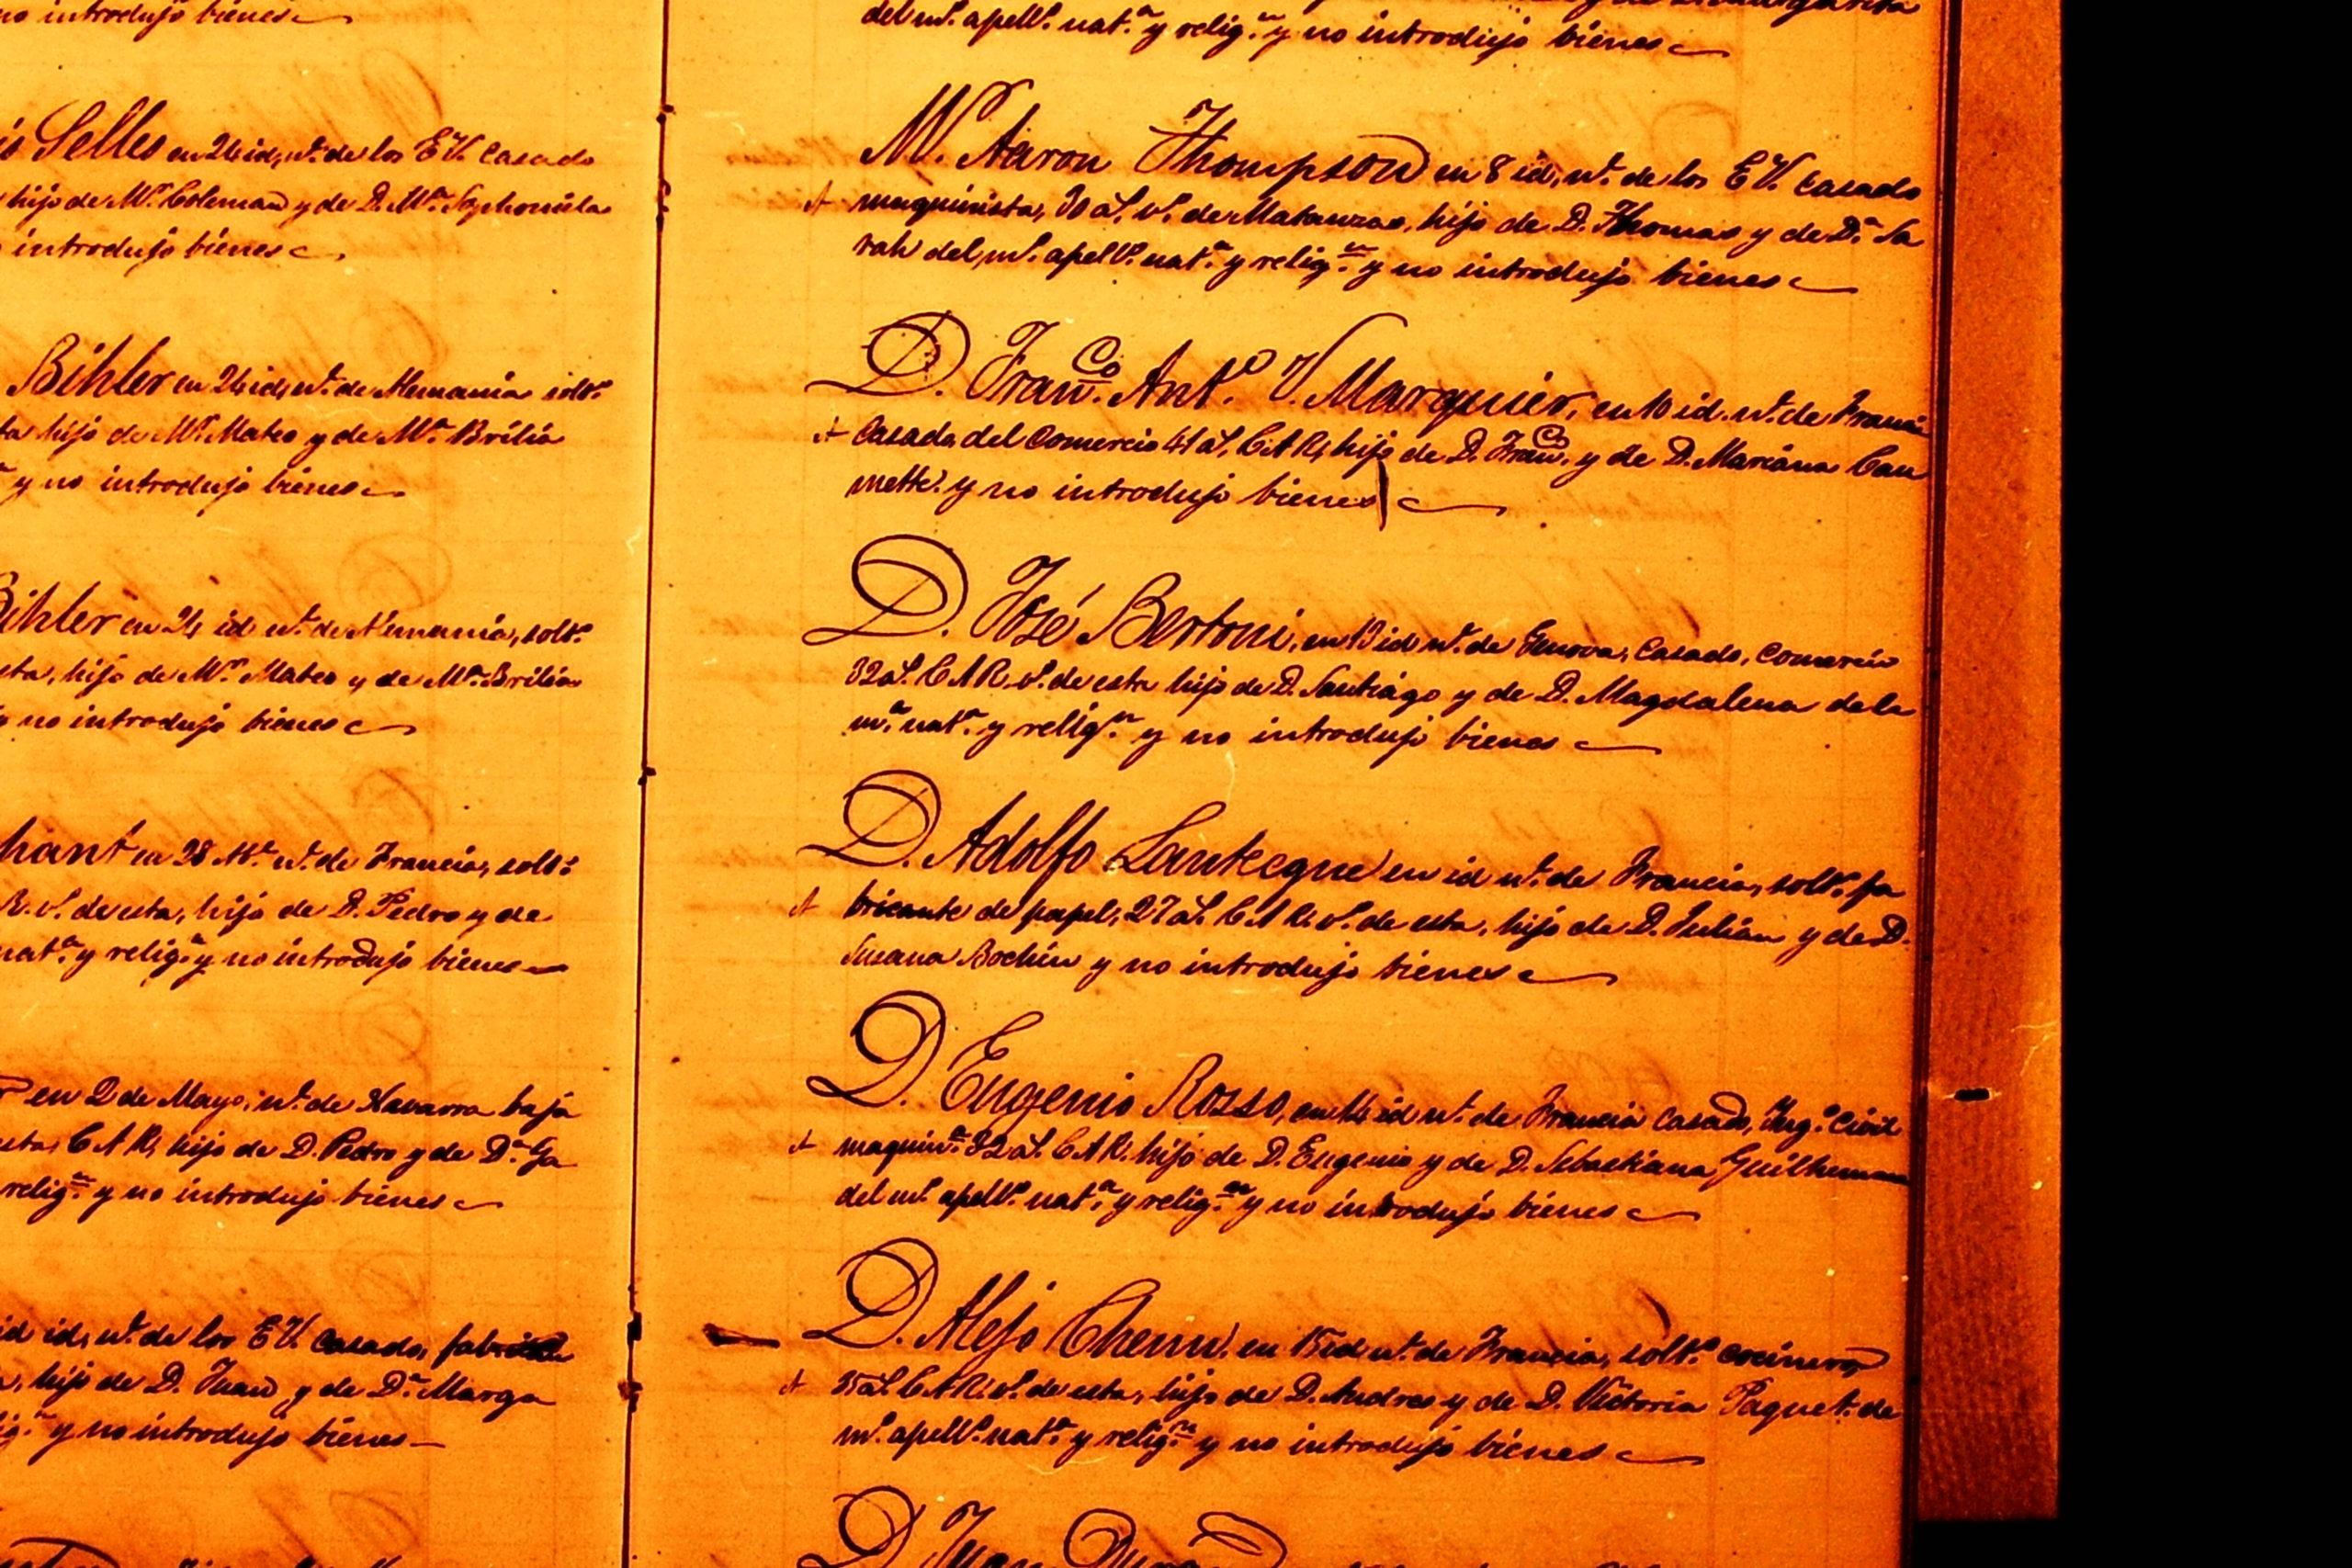 no introdujo bienes
Selles en 24 id, nt. de los E.U. casado
hijo de Mr. Coleman y de D. Ma. Sophonicla
introdujo bienes
Bihler en 24 id, nt. de Alemania solto.
ta hijo de Mr. Mateo y de Ma. Brilia
y no introdujo bienes
Bihler en 24 id nt. de Alemania, solto.
sta, hijo de Mr. Mateo y de Ma. Brilia
y no introdujo bienes
hant en 28 Ab. nt. de Francia, solto.
R. vo. de esta, hijo de D. Pedro y de
nata. y relign. y no introdujo bienes
en 2 de Mayo, nt. de Navarra baja
esta, C A R, hijo de D. Pedro y de Da. Ga
relign. y no introdujo bienes
id id, nt. de los E.U. casado,
hijo de D. Juan y de Da. Marga
y no introdujo bienes
del mo. apello. nata. y relign. y no introdujo bienes
Mr. Aaron Thompson en 8 id, nt. de los E.U. casado
maquinista, 30 as. vo. de Matanzas, hijo de D. Thomas y de Da. Sa
rah del mo. apello. nata. y relign. y no introdujo bienes
D. Franco. Anto. V. Marquier, en 10 id. nt. de Francia
casado, del comercio 41 as. C A R, hijo de D. Franco. y de D. Mariana Cau
mette. y no introdujo bienes
D. José Bertoni, en 13 id nt. de Genova, casado, comercio
32 as. C A R. vo. de esta hijo de D. Santiago y de D. Magdalena de la
ma. nata. y relign. y no introdujo bienes
D. Adolfo Lankeque en id nt. de Francia, solto. fa
bricante de papel, 27 as. C A R. vo. de esta, hijo de D. Julian y de D.
Susana Bochin y no introdujo bienes
D. Eugenio Rosso, en 14 id nt. de Francia casado, Ingo. civil
maquina. 32 as. C A R. hijo de D. Eugenio y de D. Sebastiana
del mo. apello. nata. y relign. y no introdujo bienes
D. Alejo Chenu, en 15 id nt. de Francia, solto. cocinero
35 as. C A R. vo. de esta, hijo de D. Andres y de D. Victoria Paquet. de
mo. apello. nata. y relign. y no introdujo bienes
D. Juan